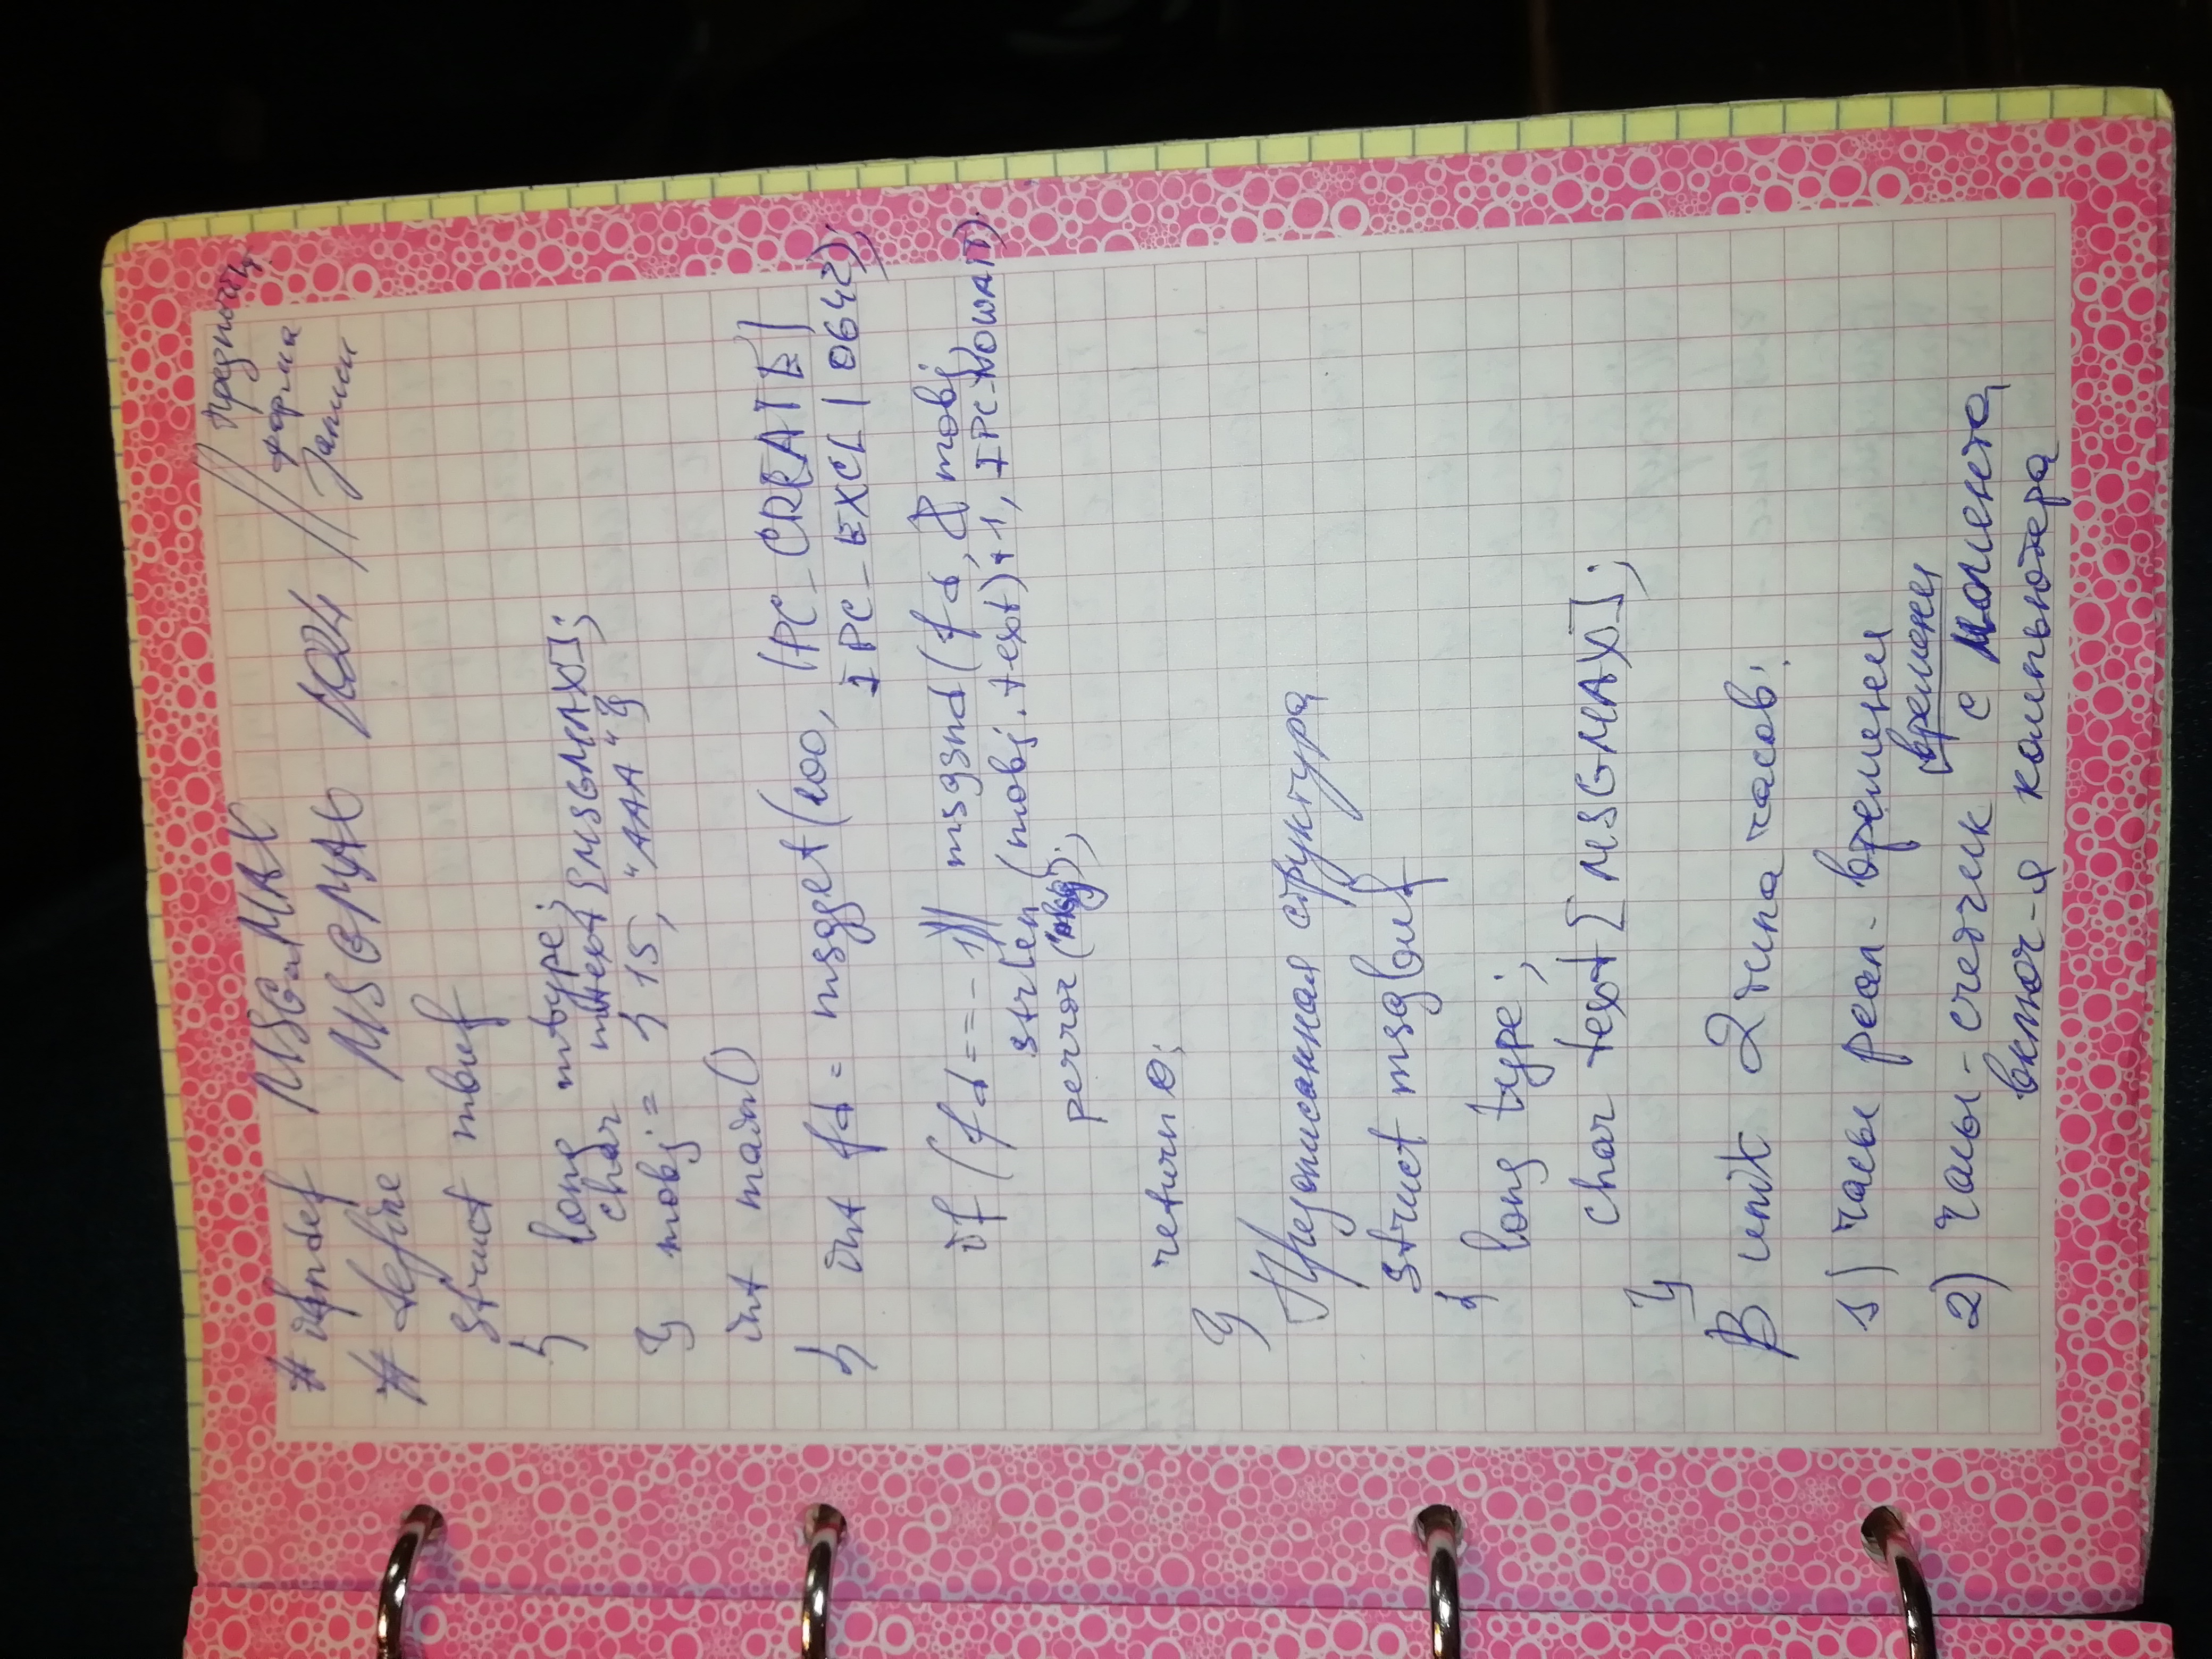 # ifndef MSGMAX // Предпочтит.
форма
# define MSGMAX 1024 // записи
struct mbuf
{ long mtype;
char mtext [MSGMAX];
} mobj = { 15, "AAA" }
int main()
{ int fd = msgget (100, IPC_CREATE |
IPC_EXCL | 0642);
if (fd == -1 || msgsnd (fd, & mobj,
strlen (mobj.text) + 1, IPC_NOWAIT)
perror ("msg");
return 0;
}
Предописанная структура
struct msgbuf
{ long type;
char text [MSGMAX];
}
В unix 2 типа часов:
1) часы реал. времени
времени
2) часы-счетчик с момента
включ-я компьютера